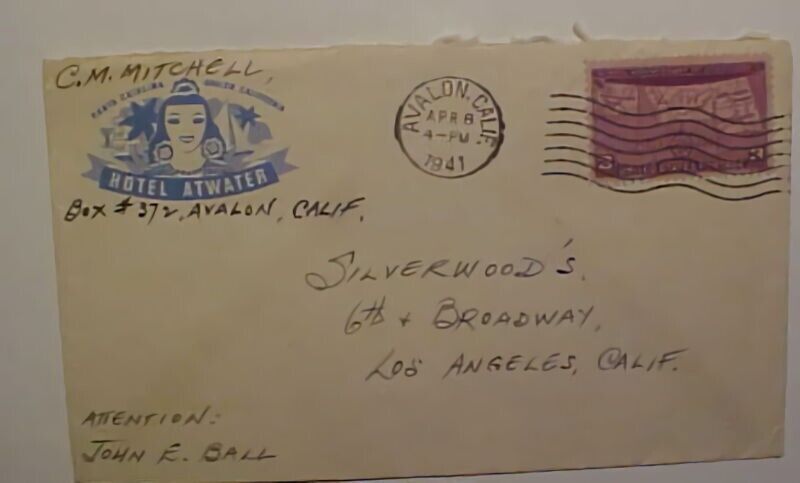 C.M. MITCHELL,
HOTEL ATWATER
BOX # 372, AVALON, CALIF.
AVALON, CALIF.
APR 8
4-PM
1941
3 3
SILVERWOOD'S.
6th + BROADWAY,
LOS ANGELES, CALIF.
ATTENTION:
JOHN E. BALL